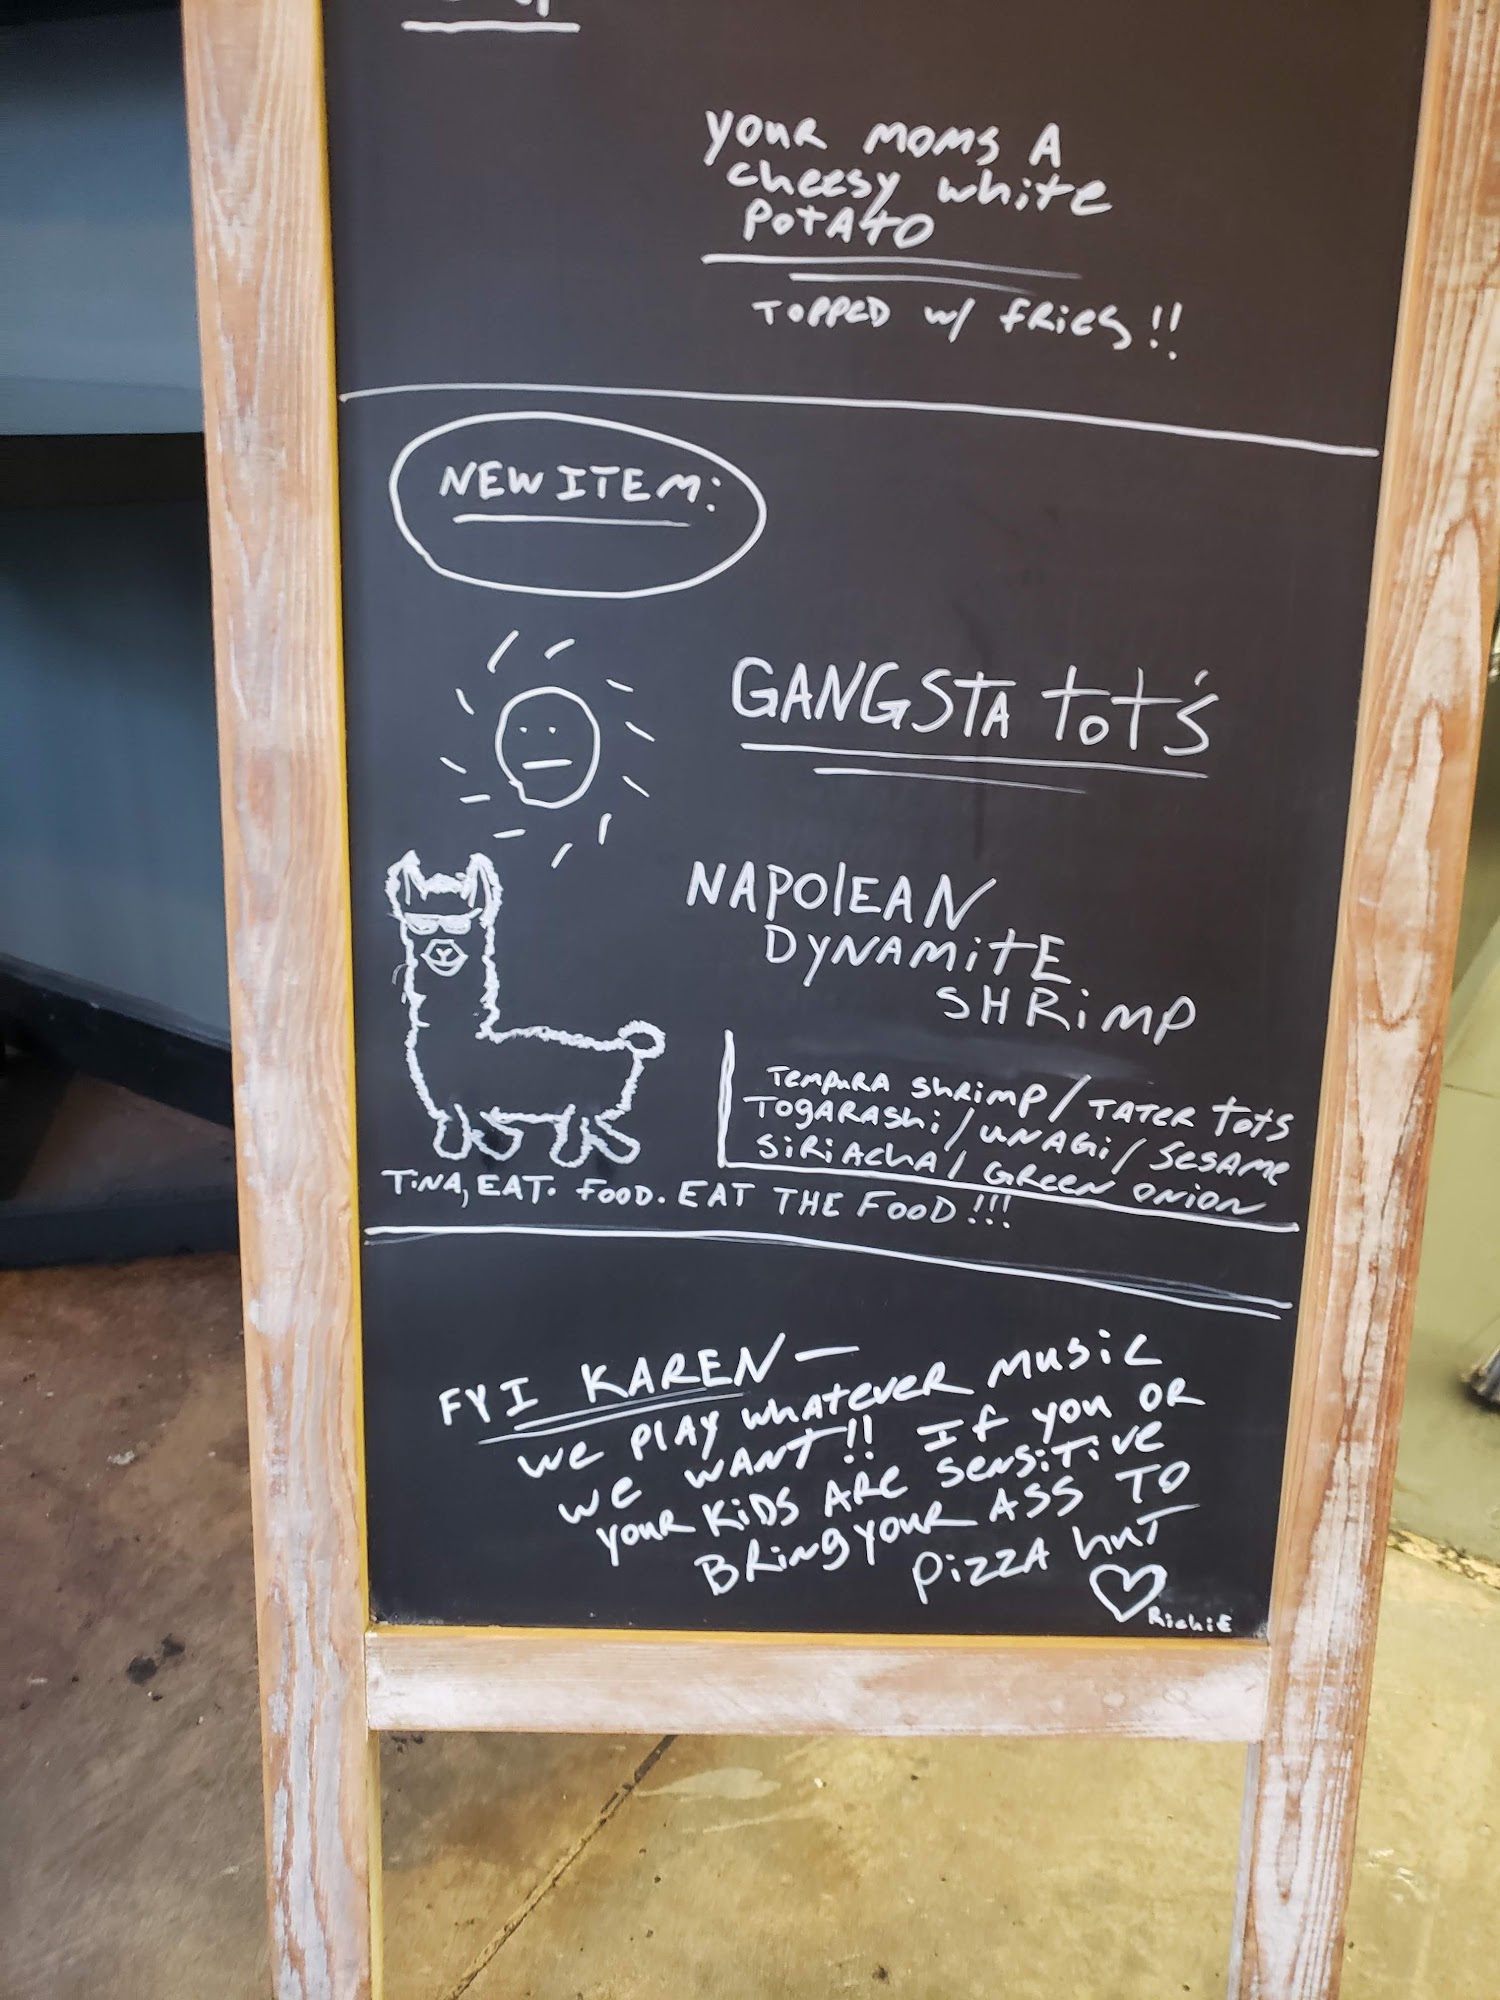 your moms A
cheesy white
potato
topped w/ fries!!
NEW ITEM:
GANGSTA tot's
NAPOLEAN
DYNAMITE
SHRIMP
Tempura shrimp/ TATER tots
TOgARAshi/ UNAgi/ sesame
SiRiAchA/ GReen onion
TINA, EAT. FOOD. EAT THE FOOD!!!
FYI KAREN—
we play whatever music
we want!! If you or
your kids are sensitive
Bring your ASS TO
pizza hut
♡ RichiE